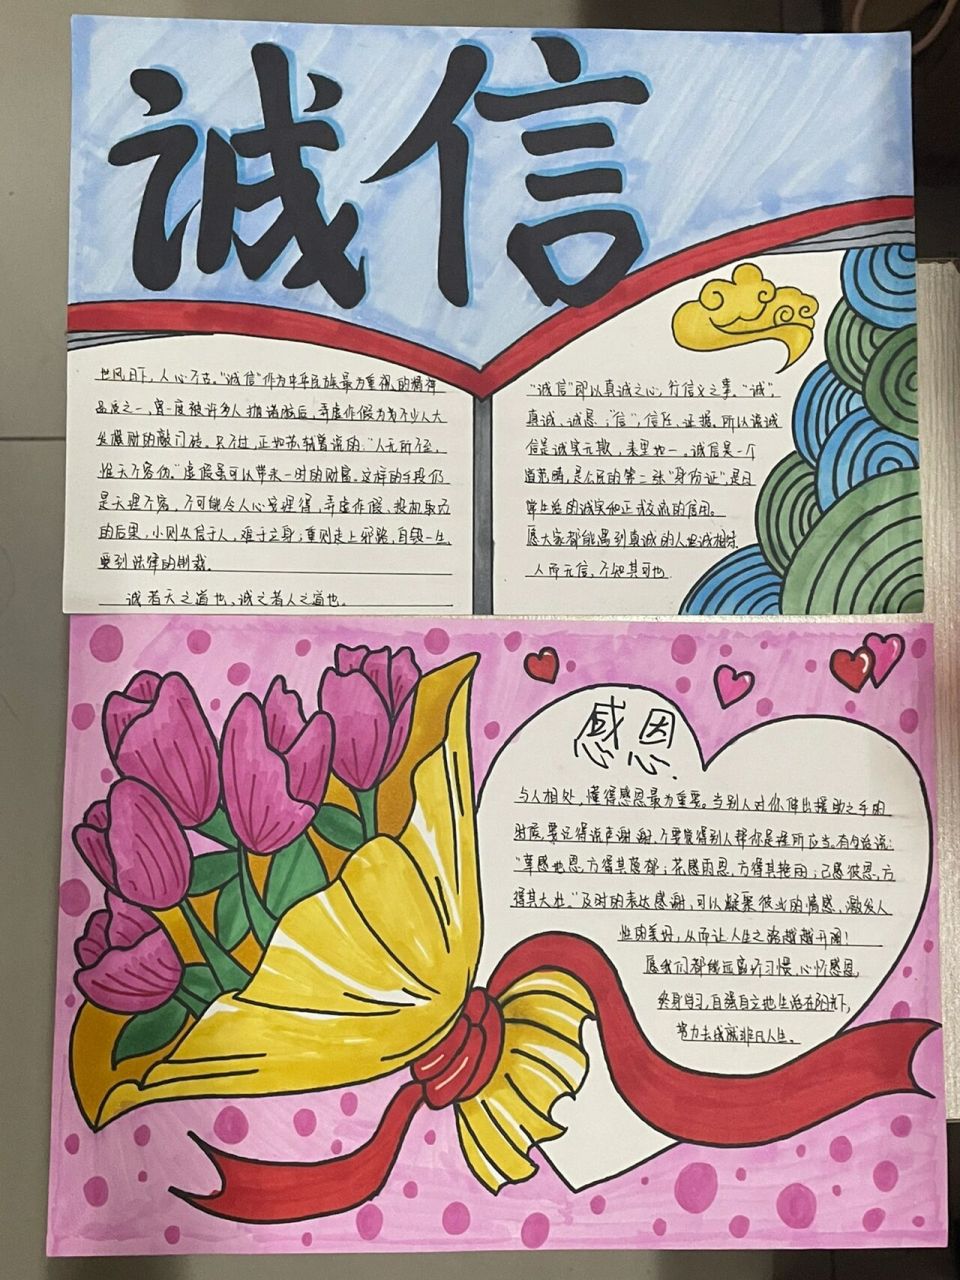 誠信
世风日下，人心不古。"诚信"作为中华民族最为重视的精神
品质之一，曾一度被许多人抛诸脑后，弄虚作假成为不少人大
发横财的敲门砖。只不过，正如苏轼曾说的："人无所不至，
惟天不容伪。"虚假虽可以带来一时的财富，这样的手段仍
是天理不容，不可能令人心安理得，弄虚作假、投机取巧
的后果，小则失信于人，难于立身；重则走上邪路，自毁一生，
受到法律的制裁。
诚者天之道也、诚之者人之道也。
"诚信"即以真诚之心，行信义之事。"诚"，
真诚、诚恳；"信"，信任、证据，所以说诚
信是诚实无欺，表里如一，诚信是一个
道范畴，是公民的第二张"身份证"，是日
常生活的诚实和正式交流的信用。
愿大家都能遇到真诚的人坦诚相待
人而无信，不知其可也
感恩
与人相处，懂得感恩最为重要。当别人对你伸出援助之手的
时候，要记得说声谢谢，不要觉得别人帮你是理所应当。有句话说：
"草感地恩，方得其葱郁；花感雨恩，方得其艳丽；己感彼恩，方
得其大壮。"及时的表达感谢，可以凝聚彼此的情感，激发人
性的美好，从而让人生之路越越开阔！
愿我们都能远离坏习惯，心怀感恩，
终身学习，自强自立地生活在阳光下，
努力去成就非凡人生。